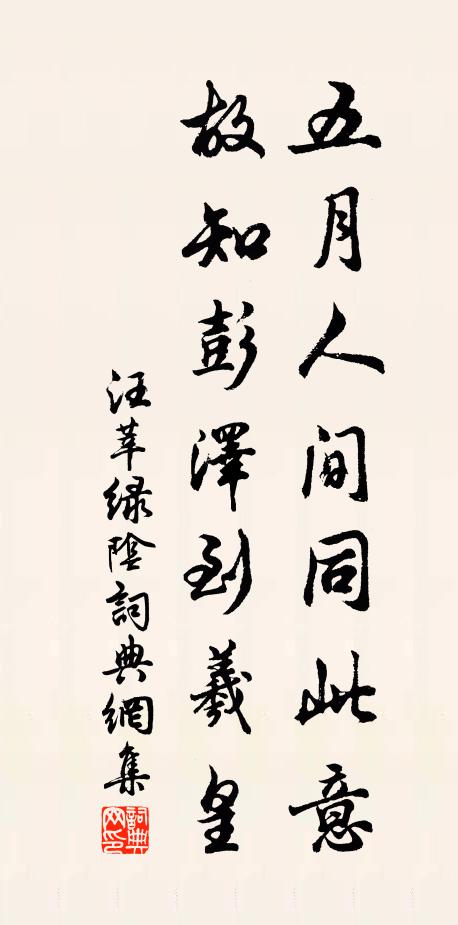 五月人间同此意
故知彭澤到羲皇
汪莘緑陰詞典網集
詞典网印